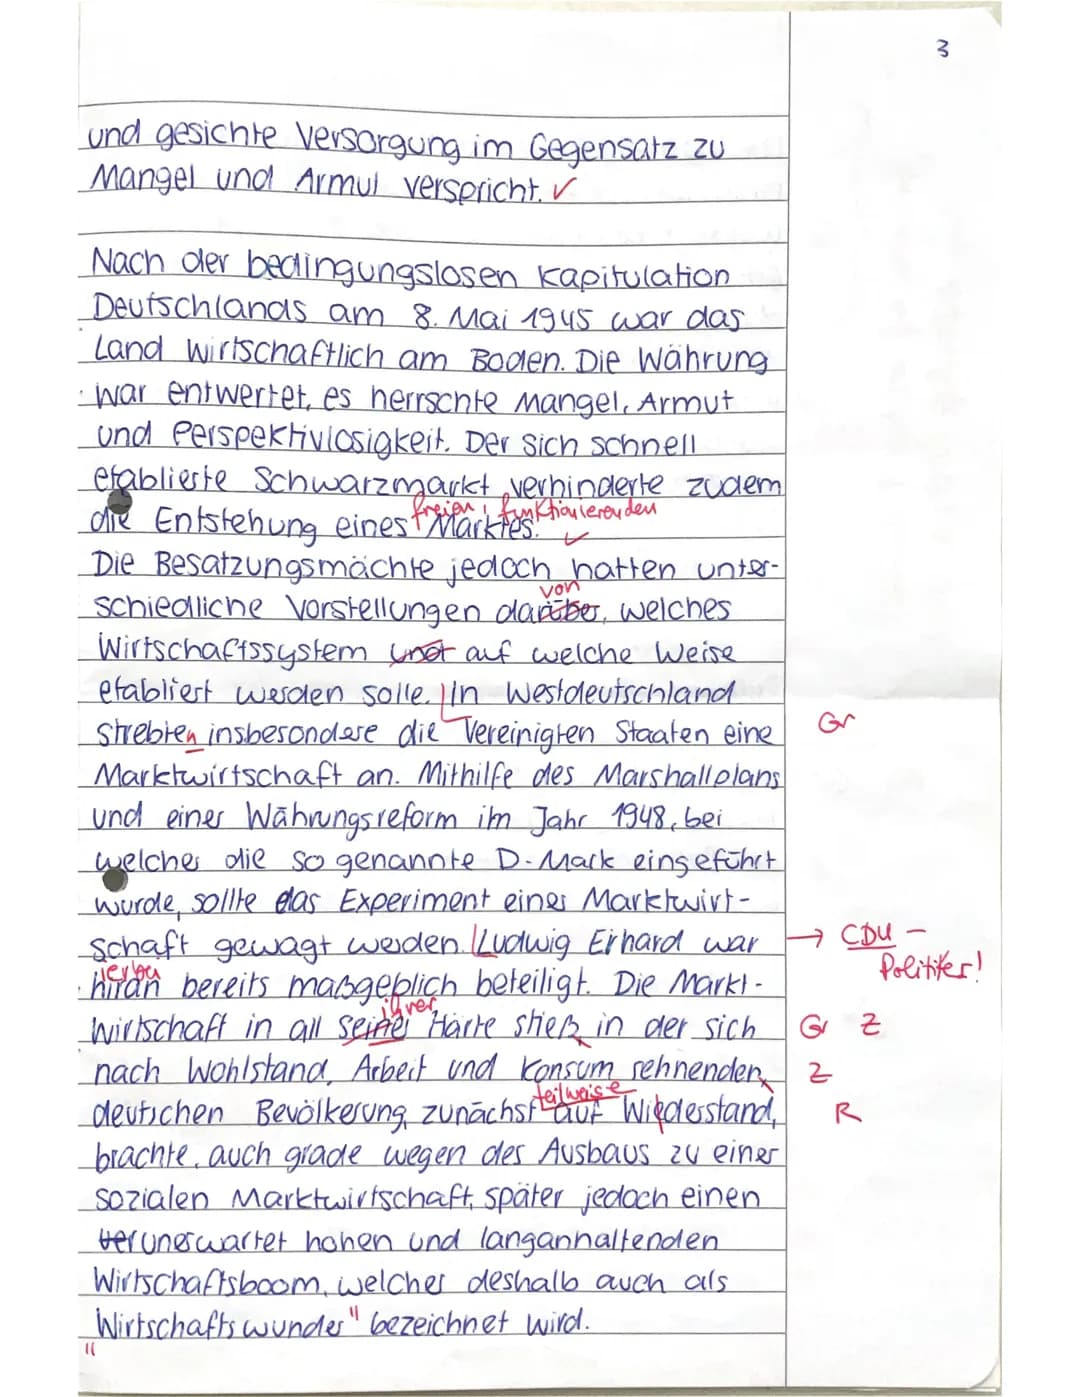 3
und gesichte Versorgung im Gegensatz zu
Mangel und Armut verspricht. ✓
Nach der bedingungslosen Kapitulation
Deutschlands am 8. Mai 1945 war das
Land wirtschaftlich am Boden. Die Währung
war entwertet, es herrschte Mangel, Armut
und Perspektivlosigkeit. Der sich schnell
etablierte Schwarzmarkt verhinderte zudem
freien, funktionierenden
die Entstehung eines Marktes. ✓
Die Besatzungsmächte jedoch hatten unter-
von
schiedliche Vorstellungen darüber, welches
Wirtschaftssystem und auf welche Weise
etabliert werden solle. In Westdeutschland
strebten insbesondere die Vereinigten Staaten eine Gr
Marktwirtschaft an. Mithilfe des Marshallplans
und einer Währungsreform im Jahr 1948, bei
welcher die so genannte D-Mark eingeführt
wurde, sollte das Experiment einer Marktwirt-
schaft gewagt werden. Ludwig Erhard war → CDU -
Politiker!
ierbei
hiran bereits maßgeblich beteiligt. Die Markt-
ihrer
wirtschaft in all seiner Härte stieß in der sich Gr Z
nach Wohlstand, Arbeit und Konsum sehnenden, Z
teilweise
deutschen Bevölkerung, zunächst auf Wiederstand, R
brachte, auch grade wegen des Ausbaus zu einer
sozialen Marktwirtschaft, später jedoch einen
ver unerwartet hohen und langanhaltenden
Wirtschaftsboom, welcher deshalb auch als
"Wirtschaftswunder" bezeichnet wird.